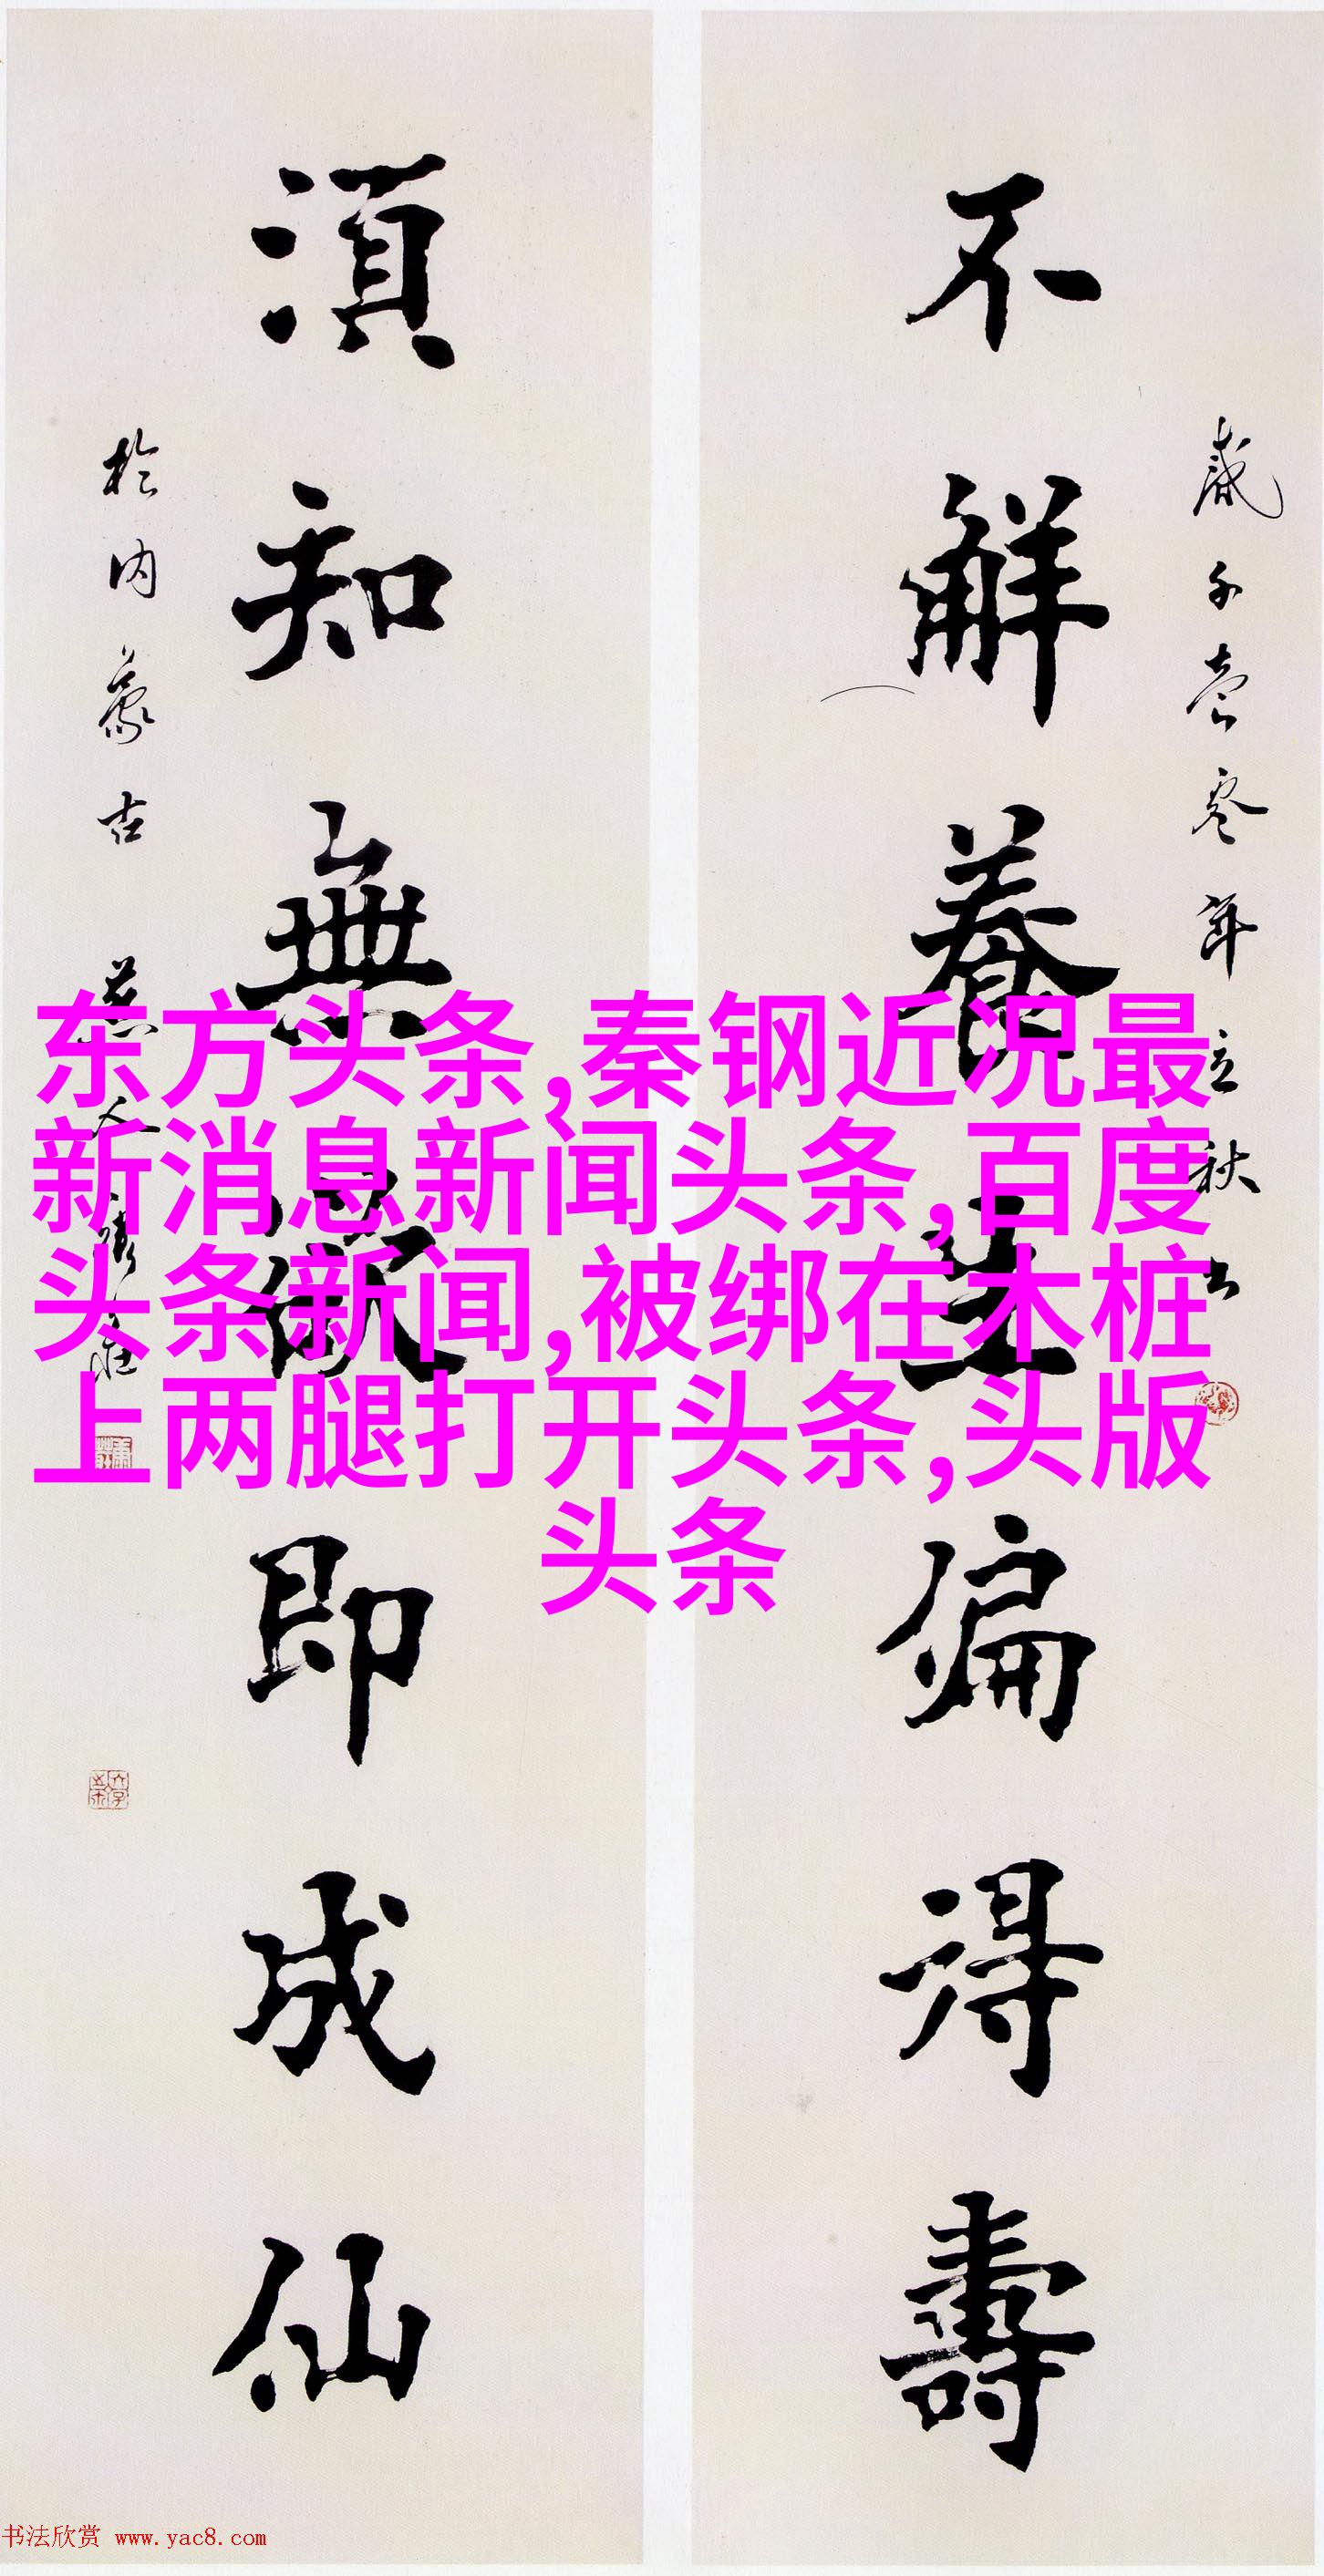 不解養生偏得壽
歲千壹零年立秋書
須知無欲即成仙
於內蒙古
东方头条,秦钢近况最
新消息新闻头条,百度
头条新闻,被绑在木桩
上两腿打开头条,头版
头条
书法欣赏 www.yac8.com